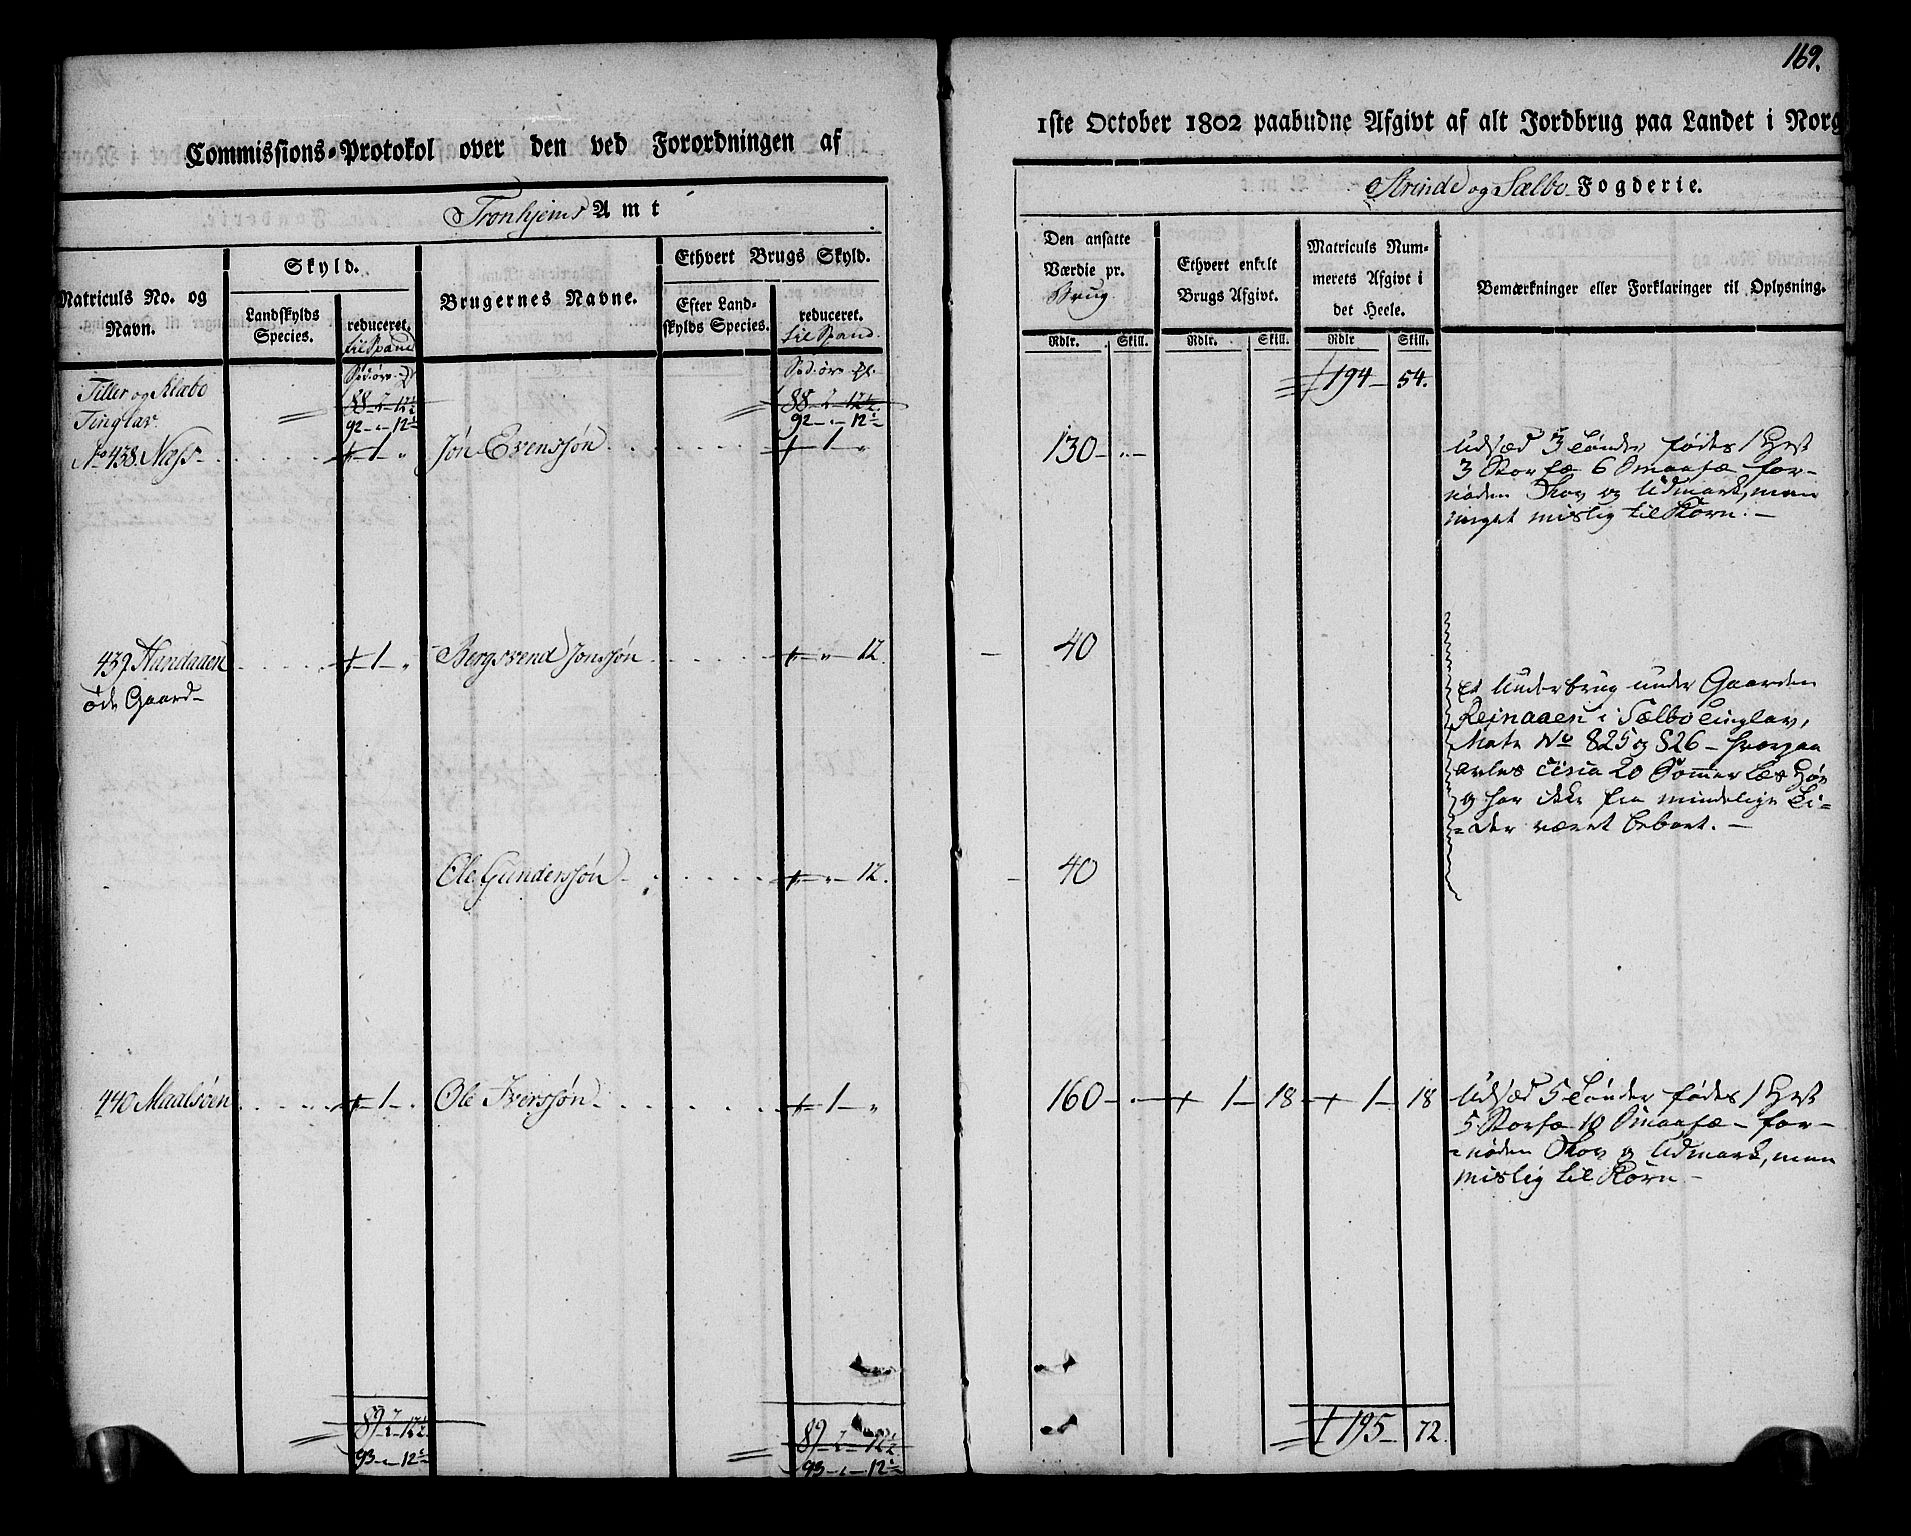 169.
Commissions-Protokol over den ved Forordningen af
1ste October 1802 paabudne Afgivt af alt Jordbrug paa Landet i Norg
Tronhjems Amt
Strinde og Sælbo Fogderie.
Matriculs No. og Navn.
Skyld.
Landskylds Species.
reduceret. til Spand
Brugernes Navne.
Ethvert Brugs Skyld.
Efter Landskylds Species.
reduceret. til Spand.
Den ansatte Værdie pr. Brug.
Rdlr. Skill.
Ethvert enkelt Brugs Afgivt.
Rdlr. Skill.
Matriculs Nummerets Afgivt i det Heele.
Rdlr Skill.
Bemærkninger eller Forklaringer til Oplysning.
Tiller og Klæbo
Tinglav.
88 - 2 - 12½ 88 - 2 - 12½ 194 - 54.
92 - " - 12½ 92 - " - 12½
No 438. Næss 1 " Jon Evenssøn 1 " 130 - " -
Udsæd 3 Tønder fødes 1 Hest
3 Storfæ 6 Smaafæ for-
nøden Skov og Udmark, men
meget mislig til Korn. -
439 Handaaen 1 " Bergsvend Jonssøn " 12 40
øde Gaard -
et Underbrug under Gaarden
Rejnaaen i Sælbo Tinglav,
Matr No 825 og 826 - hvorpaa
avles circa 20 Sommer Læs Høe
og har ikke fra mindelige Ti-
der været beboet. -
Ole Gunderssøn " 12. 40
440 Maalsøen 1 " Ole Iverssøn 1 " 160 - " 1 - 18 1 - 18
Udsæd 5 Tønder fødes 1 Hest
5 Storfæ 10 Smaafæ - for-
nøden Skov og Udmark, men
mislig til Korn -
89 - 2 - 12½ 89 - 2 - 12½ 195 - 72.
93 - " - 12½ 93 - " - 12½